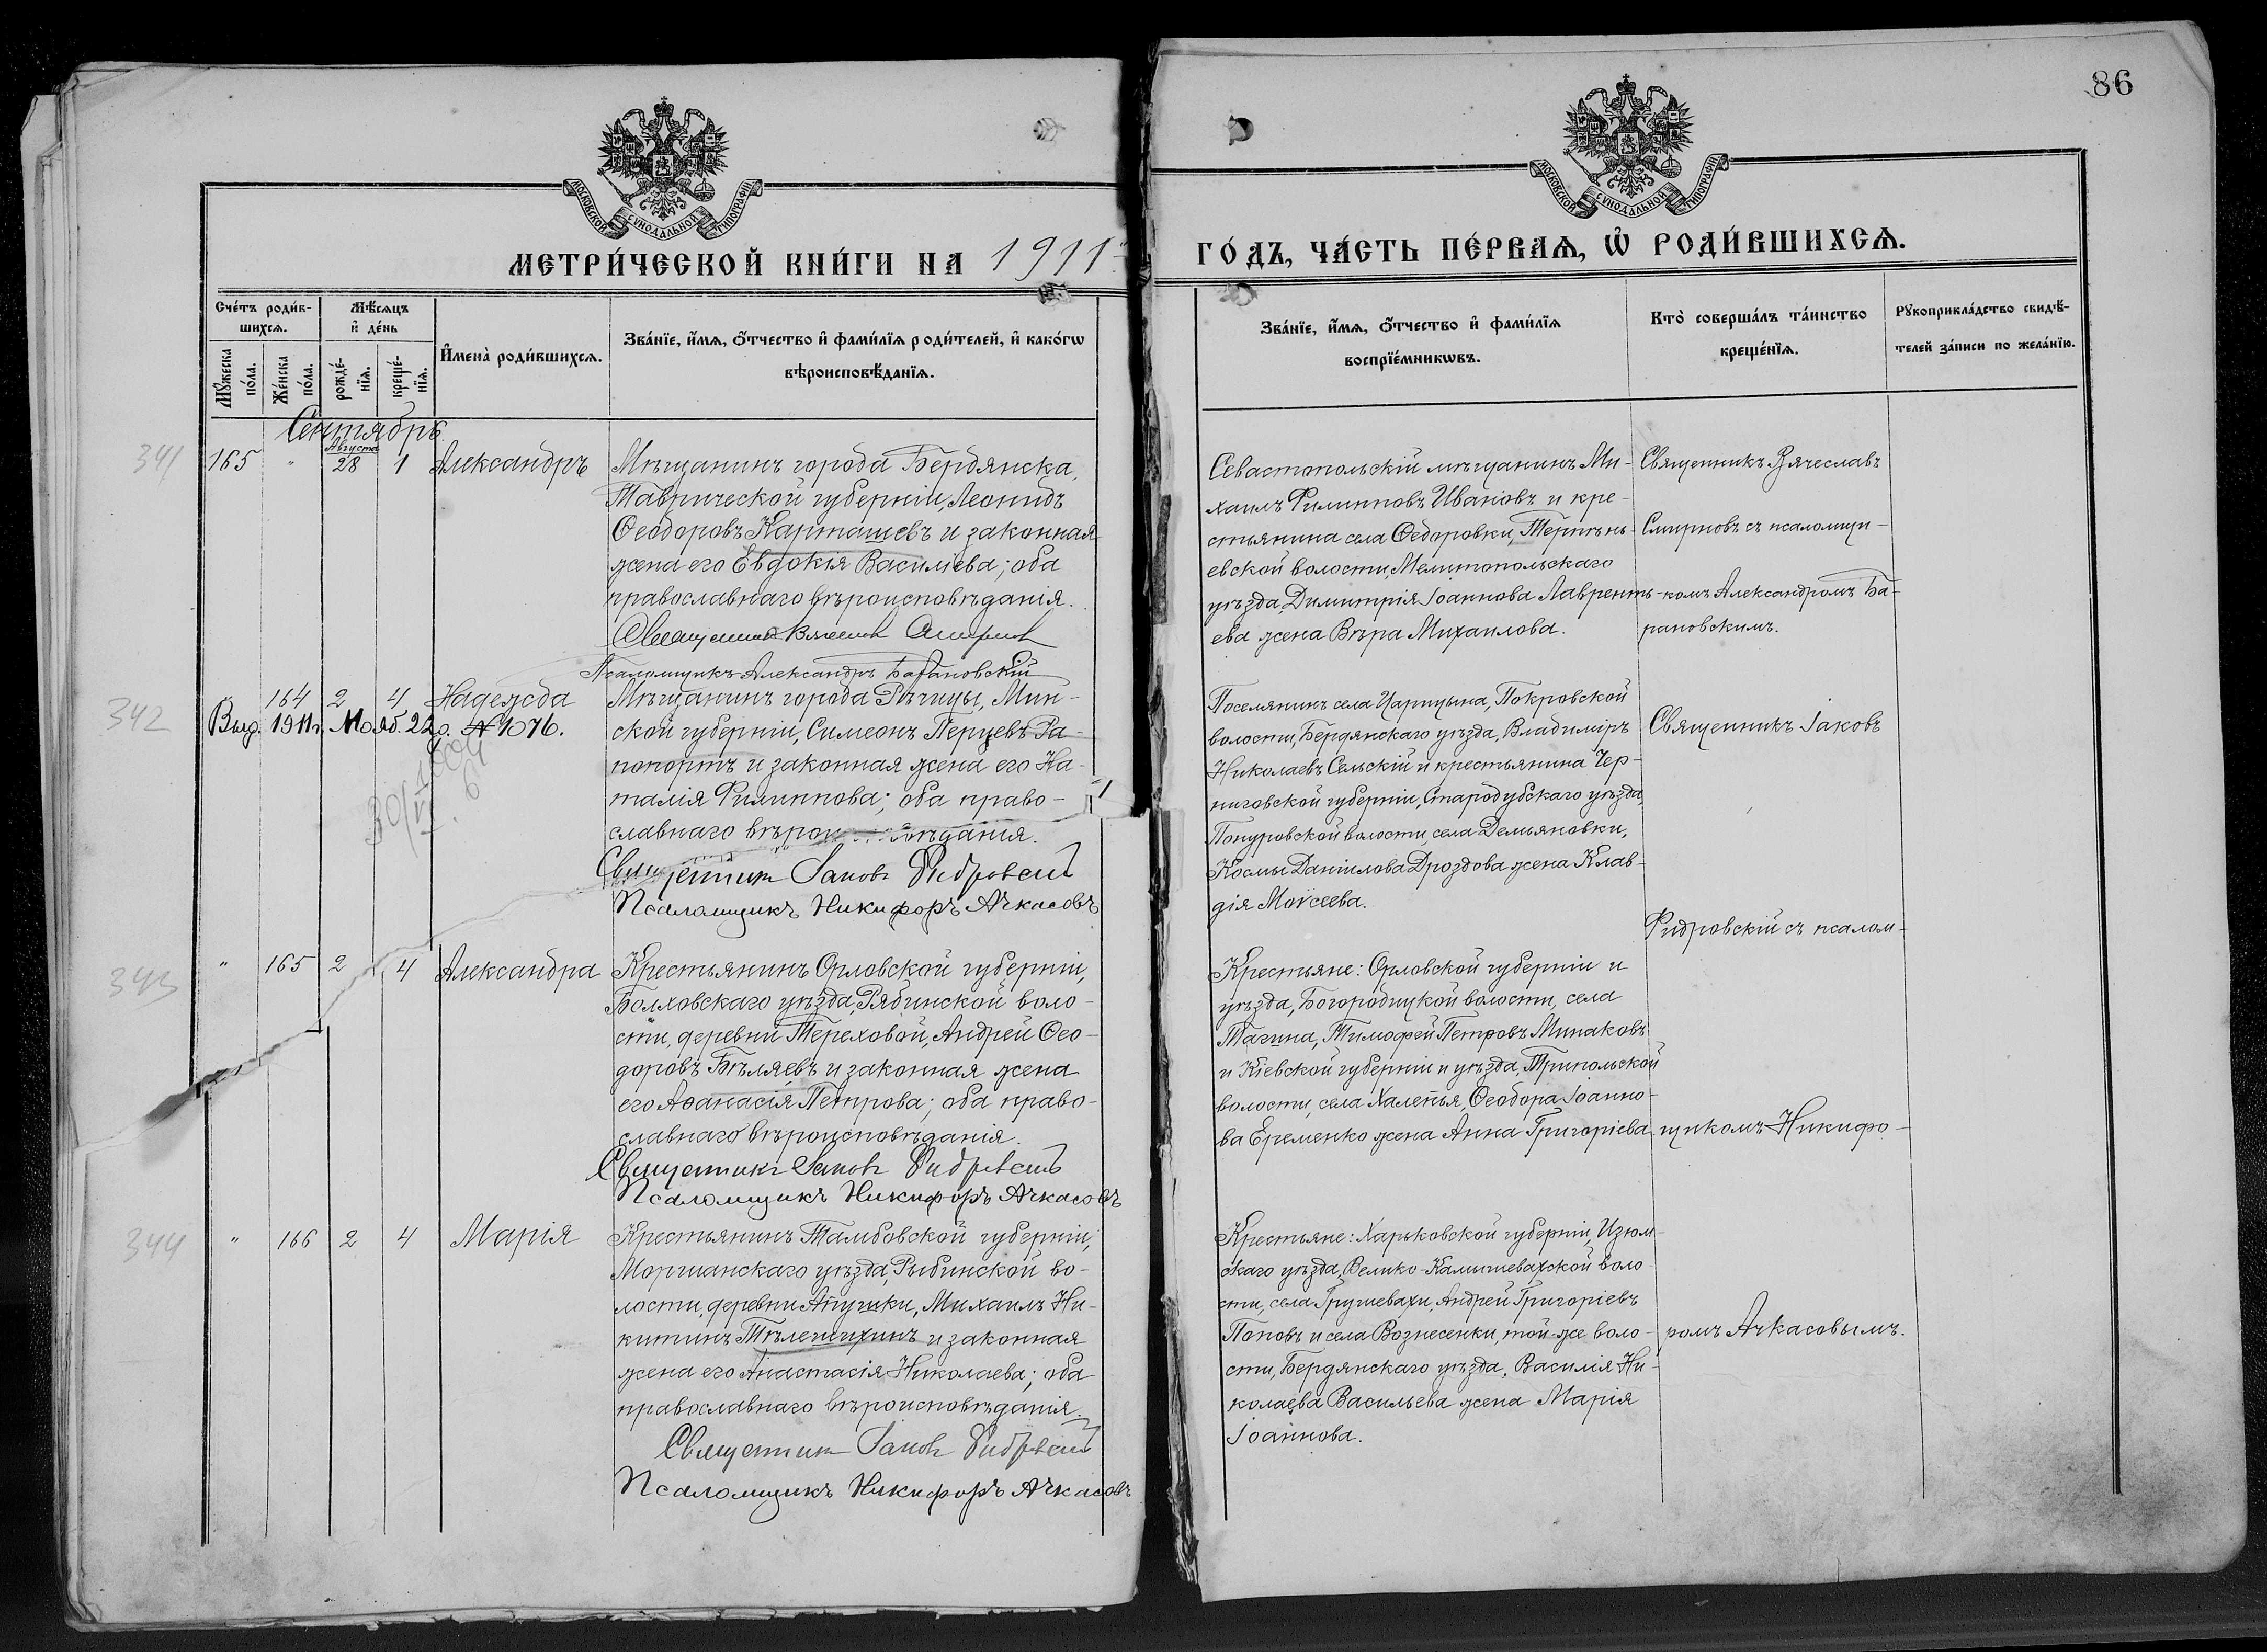 86
МОСКОВСКОЙ СѴНОДАЛЬНОЙ ТИПОГРАФІИ
МОСКОВСКОЙ СѴНОДАЛЬНОЙ ТИПОГРАФІИ
МЕТРИ́ЧЕСКОЙ КНИ́ГИ НА 1911
ГО́ДЪ, ЧА́СТЬ ПЕ́РВАѦ, Ѡ҆ РОДИ́ВШИХСѦ.
Сче́тъ роди́в-
шихсѧ.
Мꙋ́жеска
по́ла.
Же́нска
по́ла.
Мѣ́сѧцъ
и҆ де́нь
рожде́-
нїѧ.
креще́-
нїѧ.
И҆мена̀ роди́вшихсѧ.
Зва́нїе, и҆́мѧ, ѻ҆́тчество и҆ фами́лїѧ роди́телей, и҆ како́гѡ
вѣроисповѣ́данїѧ.
Зва́нїе, и҆́мѧ, ѻ҆́тчество и҆ фами́лїѧ
воспрїе́мникѡвъ.
Кто̀ соверша́лъ та́инство
креще́нїѧ.
Рꙋкоприкла́дство свидѣ́-
телей за́писи по жела́нїю.
Сентябрь
341
165 " Августа 28 1 Александръ
Мѣщанинъ города Бердянска,
Таврической губерніи, Леонидъ
Ѳеодоровъ Карташевъ и законная
жена его Евдокія Василіева; оба
православнаго вѣроисповѣданія.
Священникъ Вячеслав Смирнов
Псаломщикъ Александръ Барановскій
Севастопольскій мѣщанинъ Ми-
хаилъ Филипповъ Ивановъ и кре-
стьянина села Ѳедоровки, Терпѣнь-
евской волости, Мелитопольскаго
уѣзда, Димитрія Іоаннова Лаврентъ-
ева жена Вѣра Михаилова.
Священникъ Вячеславъ
Смирновъ съ псаломщи-
комъ Александромъ Ба-
рановскимъ.
342
164 2 4 Надежда
Выд. 1911 г. Нояб. 22 д. № 1076.
Мѣщанинъ города Рѣчицы, Мин-
ской губерніи, Симеонъ Перцевъ Ра-
попортъ и законная жена его На-
талія Филиппова; оба право-
славнаго вѣроисповѣданія.
Священникъ Іаковъ Фидровскій
Псаломщикъ Никифоръ Ачкасовъ
Поселянинъ села Царицына, Покровской
волости, Бердянскаго уѣзда, Владиміръ
Николаевъ Сельскій и крестьянина Чер-
ниговской губерніи, Стародубскаго уѣзда,
Понуровской волости, села Демьяновки,
Космы Даніилова Дроздова жена Клав-
дія Моѵсеева.
Священникъ Іаковъ
Фидровскій съ псалом-
343
" 165 2 4 Александра
Крестьянинъ Орловской губерніи,
Болховскаго уѣзда, Рябинской воло-
сти, деревни Тереховой, Андрей Ѳео-
доровъ Бѣляевъ и законная жена
его Аѳанасія Петрова; оба право-
славнаго вѣроисповѣданія.
Священникъ Іаковъ Фидровскій
Псаломщикъ Никифоръ Ачкасовъ
Крестьяне: Орловской губерніи и
уѣзда, Богородицкой волости, села
Тагина, Тимоѳей Петровъ Минаковъ
и Кіевской губерніи и уѣзда, Трипольской
волости, села Халепья, Ѳеодора Іоанно-
ва Еременко жена Анна Григоріева.
щикомъ Никифо-
344
" 166 2 4 Марія
Крестьянинъ Тамбовской губерніи,
Моршанскаго уѣзда, Рыбинской во-
лости, деревни Апушки, Михаилъ Ни-
китинъ Тѣлешихинъ и законная
жена его Анастасія Николаева; оба
православнаго вѣроисповѣданія.
Священникъ Іаковъ Фидровскій
Псаломщикъ Никифоръ Ачкасовъ
Крестьяне: Харьковской губерніи, Изюм-
скаго уѣзда, Велико-Камышевахской воло-
сти, села Грушевахи, Андрей Григоріевъ
Поповъ и села Вознесенки, той-же воло-
сти, Бердянскаго уѣзда, Василія Ни-
колаева Васильева жена Марія
Іоаннова.
ромъ Ачкасовымъ.